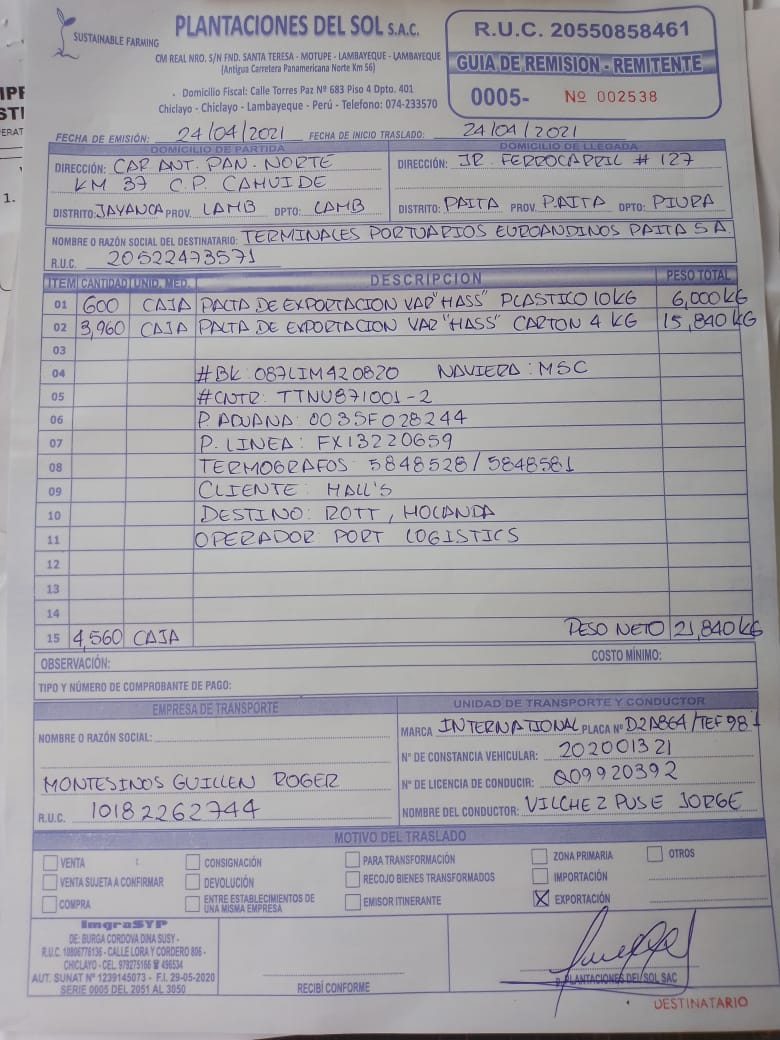 SUSTAINABLE FARMING
PLANTACIONES DEL SOL S.A.C.
CM REAL NRO. S/N FND. SANTA TERESA - MOTUPE - LAMBAYEQUE - LAMBAYEQUE
(Antigua Carretera Panamericana Norte Km 56)
Domicilio Fiscal: Calle Torres Paz Nº 683 Piso 4 Dpto. 401
Chiclayo - Chiclayo - Lambayeque - Perú - Telefono: 074-233570
R.U.C. 20550858461
GUIA DE REMISION - REMITENTE
0005- Nº 002538
FECHA DE EMISIÓN: 24/04/2021 FECHA DE INICIO TRASLADO: 24/04/2021
DOMICILIO DE PARTIDA
DIRECCIÓN: CAR ANT. PAN. NORTE
KM 37 C.P. CAHUIDE
DISTRITO: JAYANCA PROV. LAMB DPTO: LAMB
DOMICILIO DE LLEGADA
DIRECCIÓN: JR. FERROCARRIL # 127
DISTRITO: PAITA PROV. PAITA DPTO: PIURA
NOMBRE O RAZÓN SOCIAL DEL DESTINATARIO: TERMINALES PORTUARIOS EUROANDINOS PAITA S.A.
R.U.C. 20522473571
ITEM CANTIDAD UNID. MED. DESCRIPCION PESO TOTAL
01 600 CAJA PALTA DE EXPORTACION VAR "HASS" PLASTICO 10KG 6,000KG
02 3,960 CAJA PALTA DE EXPORTACION VAR "HASS" CARTON 4 KG 15,840KG
03
04 #BK: 087LIM420820 NAVIERA: MSC
05 #CNTR: TTNU871001-2
06 P. ADUANA: 0035F028244
07 P. LINEA: FX13220659
08 TERMOGRAFOS 5848528/5848581
09 CLIENTE: HALL'S
10 DESTINO: ROTT, HOLANDA
11 OPERADOR PORT LOGISTICS
12
13
14
15 4,560 CAJA PESO NETO 21,840KG
OBSERVACIÓN: COSTO MÍNIMO:
TIPO Y NÚMERO DE COMPROBANTE DE PAGO:
EMPRESA DE TRANSPORTE
NOMBRE O RAZÓN SOCIAL:
MONTESINOS GUILLEN ROGER
R.U.C. 10182262744
UNIDAD DE TRANSPORTE Y CONDUCTOR
MARCA INTERNATIONAL PLACA Nº D2A864/TEF981
Nº DE CONSTANCIA VEHICULAR: 202001321
Nº DE LICENCIA DE CONDUCIR: Q09920392
NOMBRE DEL CONDUCTOR: VILCHEZ PUSE JORGE
MOTIVO DEL TRASLADO
VENTA CONSIGNACIÓN PARA TRANSFORMACIÓN ZONA PRIMARIA OTROS
VENTA SUJETA A CONFIRMAR DEVOLUCIÓN RECOJO BIENES TRANSFORMADOS IMPORTACIÓN
COMPRA ENTRE ESTABLECIMIENTOS DE UNA MISMA EMPRESA EMISOR ITINERANTE X EXPORTACIÓN
ImgraSYP
DE: BURGA CORDOVA DINA SUSY -
R.U.C. 10806776136 - CALLE LORA Y CORDERO 806 -
CHICLAYO - CEL. 978275166 ☎ 496534
AUT. SUNAT Nº 1239145073 - F.I. 29-05-2020
SERIE 0005 DEL 2051 AL 3050
RECIBÍ CONFORME
P. PLANTACIONES DEL SOL SAC
DESTINATARIO